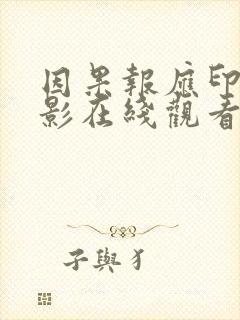 因果報應印
影在綫觀看
子與犭